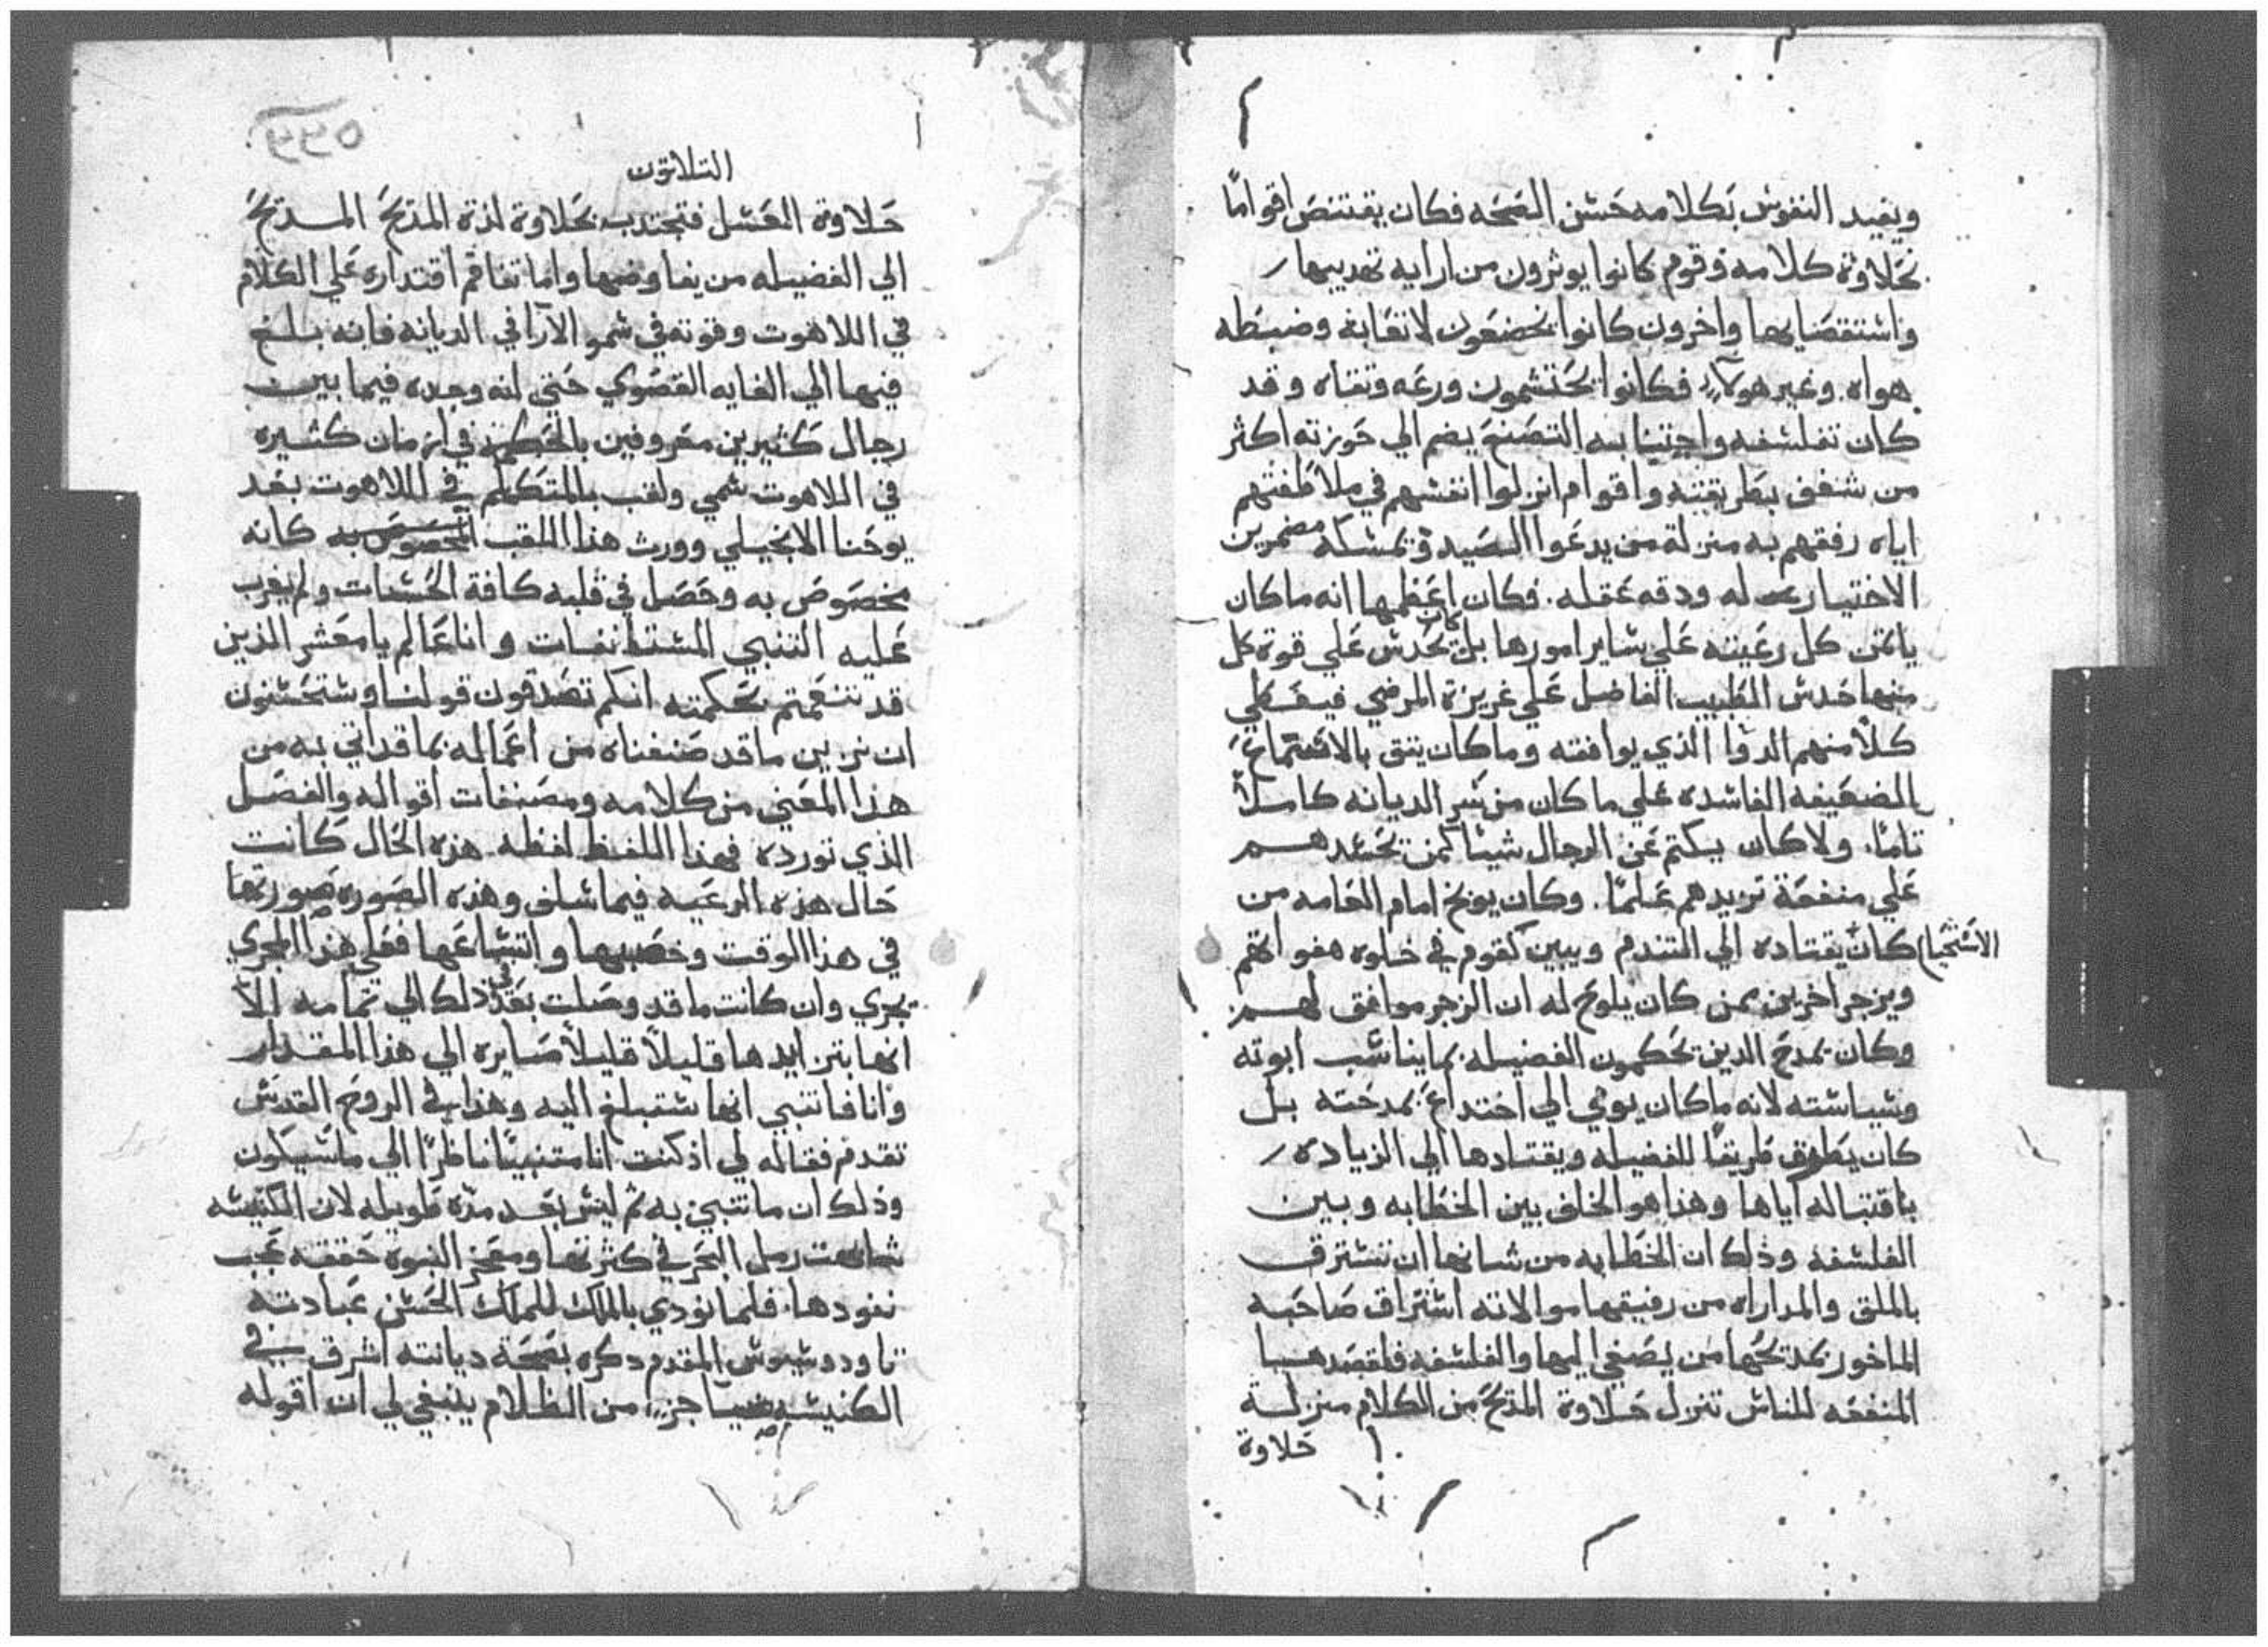 ويفيد النفوس بكلامه حسن الصحه فكان يقتنص اقوامًا
بحلاوة كلامه وقوم كانوا يوثرون من ارايه تهديبها
واستقصايها واخرون كانوا يخضعون لاتعابه وضبطه
هواه. وغير هولاء فكانوا يحتشمون ورعه وتقاه وقد
كان تفلسفه واجتنابه التصنع يضم الي حوزته اكثر
من شغف بطريقته واقوام انزلوا انفسهم في ملاطفتهم
اياه رفقهم به منزلة من يدعوا الصيد ويمسكه مضمرين
الاختيار له ودقه عقله. فكان اعظمها انه ماكان
ياتمن كل رعيته علي ساير امورها بل كان يحدس علي قوة كل
منها حدس الطبيب الفاضل علي غريزة المرضي فيعطي
كلاً منهم الدوا الذي يوافقه وماكان يثق بالاستماع
الضعيفه الفاسده علي ماكان من سر الديانه كاملاً
تامًا. ولاكان يكتم عن الرجال شيئا كمن يحسدهم
علي منفعة تزيدهم علمًا. وكان يوبخ امام العامه من
كان يقتاده الي التندم ويبين لقوم في خلوه هفواتهم
الاستحيا
ويزجر اخرين ممن كان يلوح له ان الزجر موافق لهم
وكان يمدح الدين يحكمون الفضيله بما يناسب ابوته
وسياسته لانه ماكان يومي الي اختداع بمدحته بل
كان يطرق طريقًا للفضيله ويقتادها الي الزياده
باقتباله اياها وهذا هو الخلف بين الخطابه وبين
الفلسفه وذلك ان الخطابه من شانها ان تسترق
بالملق والمداراه من رفيقها موالاته استراق صاحبه
الماخور بمديحها من يصغي اليها والفلسفه فلقصدها
المنفعه للناس تنزل حلاوة المديح من الكلام منزلة
حلاوة
التلاتون
حلاوة العسل فتجتدب بحلاوة لذة المديح المديح
الي الفضيله من يفاوضها واما تفاقم اقتداره علي الكلام
في اللاهوت وقوته في سمو الارا في الديانه فانه بلغ
فيها الي الغايه القصوي حتي انه وحده فيما بين
رجال كثيرين معروفين بالحكمه في ازمان كثيره
في اللاهوت سمي ولقب بالمتكلم في اللاهوت بعد
يوحنا الانجيلي وورث هذا اللقب المخصوص به كانه
مخصوص به وحصل في قلبه كافة الحسنات ولم يغرب
عليه التنبي المستانفات وانا عالم يا معشر الذين
قد تنعمتم بحكمته انكم تصدقون قولنا وستحسنون
ان نزين ما قد صنفناه من اعماله بما قد اتي به من
هذا المعني من كلامه ومصنفات اقواله والفصل
الذي نورده فهذا اللفظ لفظه هذه الحال كانت
حال هذه الرعيه فيما سلف وهذه الصوره صورتها
في هذا الوقت وخصبها واتساعها فعلي هذا المجري
يجري وان كانت ما قد وصلت بعد في ذلك الي تمامه الاّ
انها بتزايدها قليلاً قليلاً صايره الي هذا المقدار
وانا فاتنبي انها ستبلغ اليه وهذا في الروح القدس
تقدم فقاله لي اذ كنت انا متنبيًا ناظرًا الي ما سيكون
وذلك ان ما تنبي به تم ليس بعد مدّه طويله لان الكنيسه
شابهت رمل البحر في كثرتها ومعجز النبوة حققه عجب
نفودها. فلما نودي بالملك للملك الحسن عبادته
تاودوسيوس المقدم دكره بصحة ديانته اشرق في
الكنيسه ضيا جزء من الظلام ينبغي لي ان اقوله